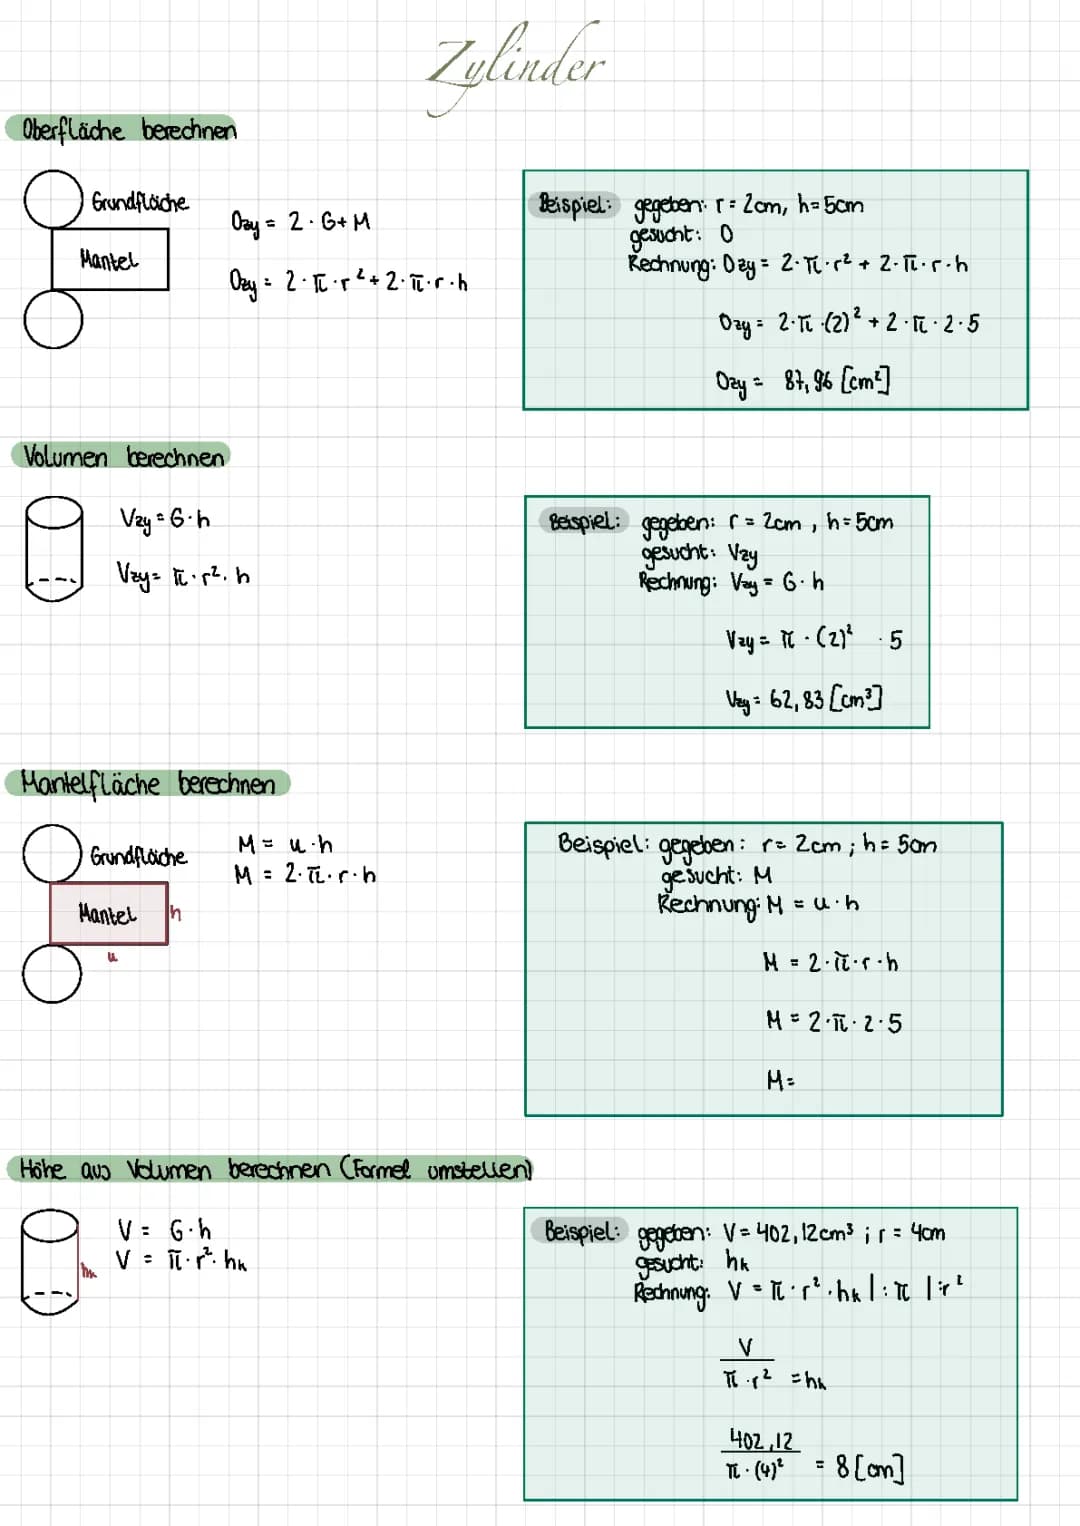 Zylinder
Oberfläche berechnen
Grundfläche
Mantel
Ozy = 2 · G + M
Ozy = 2 · π · r² + 2 · π · r · h
Beispiel: gegeben: r = 2cm, h = 5cm
gesucht: O
Rechnung: Ozy = 2 · π · r² + 2 · π · r · h
Ozy = 2 · π · (2)² + 2 · π · 2 · 5
Ozy = 87,96 [cm²]
Volumen berechnen
Vzy = G · h
Vzy = π · r² · h
Beispiel: gegeben: r = 2cm , h = 5cm
gesucht: Vzy
Rechnung: Vzy = G · h
Vzy = π · (2)² · 5
Vzy = 62,83 [cm³]
Mantelfläche berechnen
Grundfläche
Mantel
h
u
M = u · h
M = 2 · π · r · h
Beispiel: gegeben: r = 2cm ; h = 5cm
gesucht: M
Rechnung: M = u · h
M = 2 · π · r · h
M = 2 · π · 2 · 5
M =
Höhe aus Volumen berechnen (Formel umstellen)
hk
V = G · h
V = π · r² · hk
Beispiel: gegeben: V = 402,12cm³ ; r = 4cm
gesucht: hk
Rechnung: V = π · r² · hk | : π | : r²
V
π · r² = hk
402,12
π · (4)² = 8 [cm]